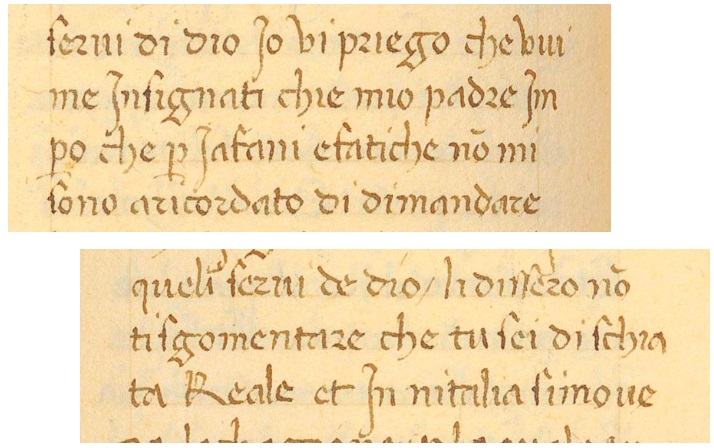 serui di dio Jo vi priego che vui
me Insignati chie mio padre Im
po che p Jafani efatiche nō mi
sono aricordato di dimandare
queli serui de dio/ li dissero nō
ti sgomentare che tu sei di schia
ta Reale et In nitalia simoue